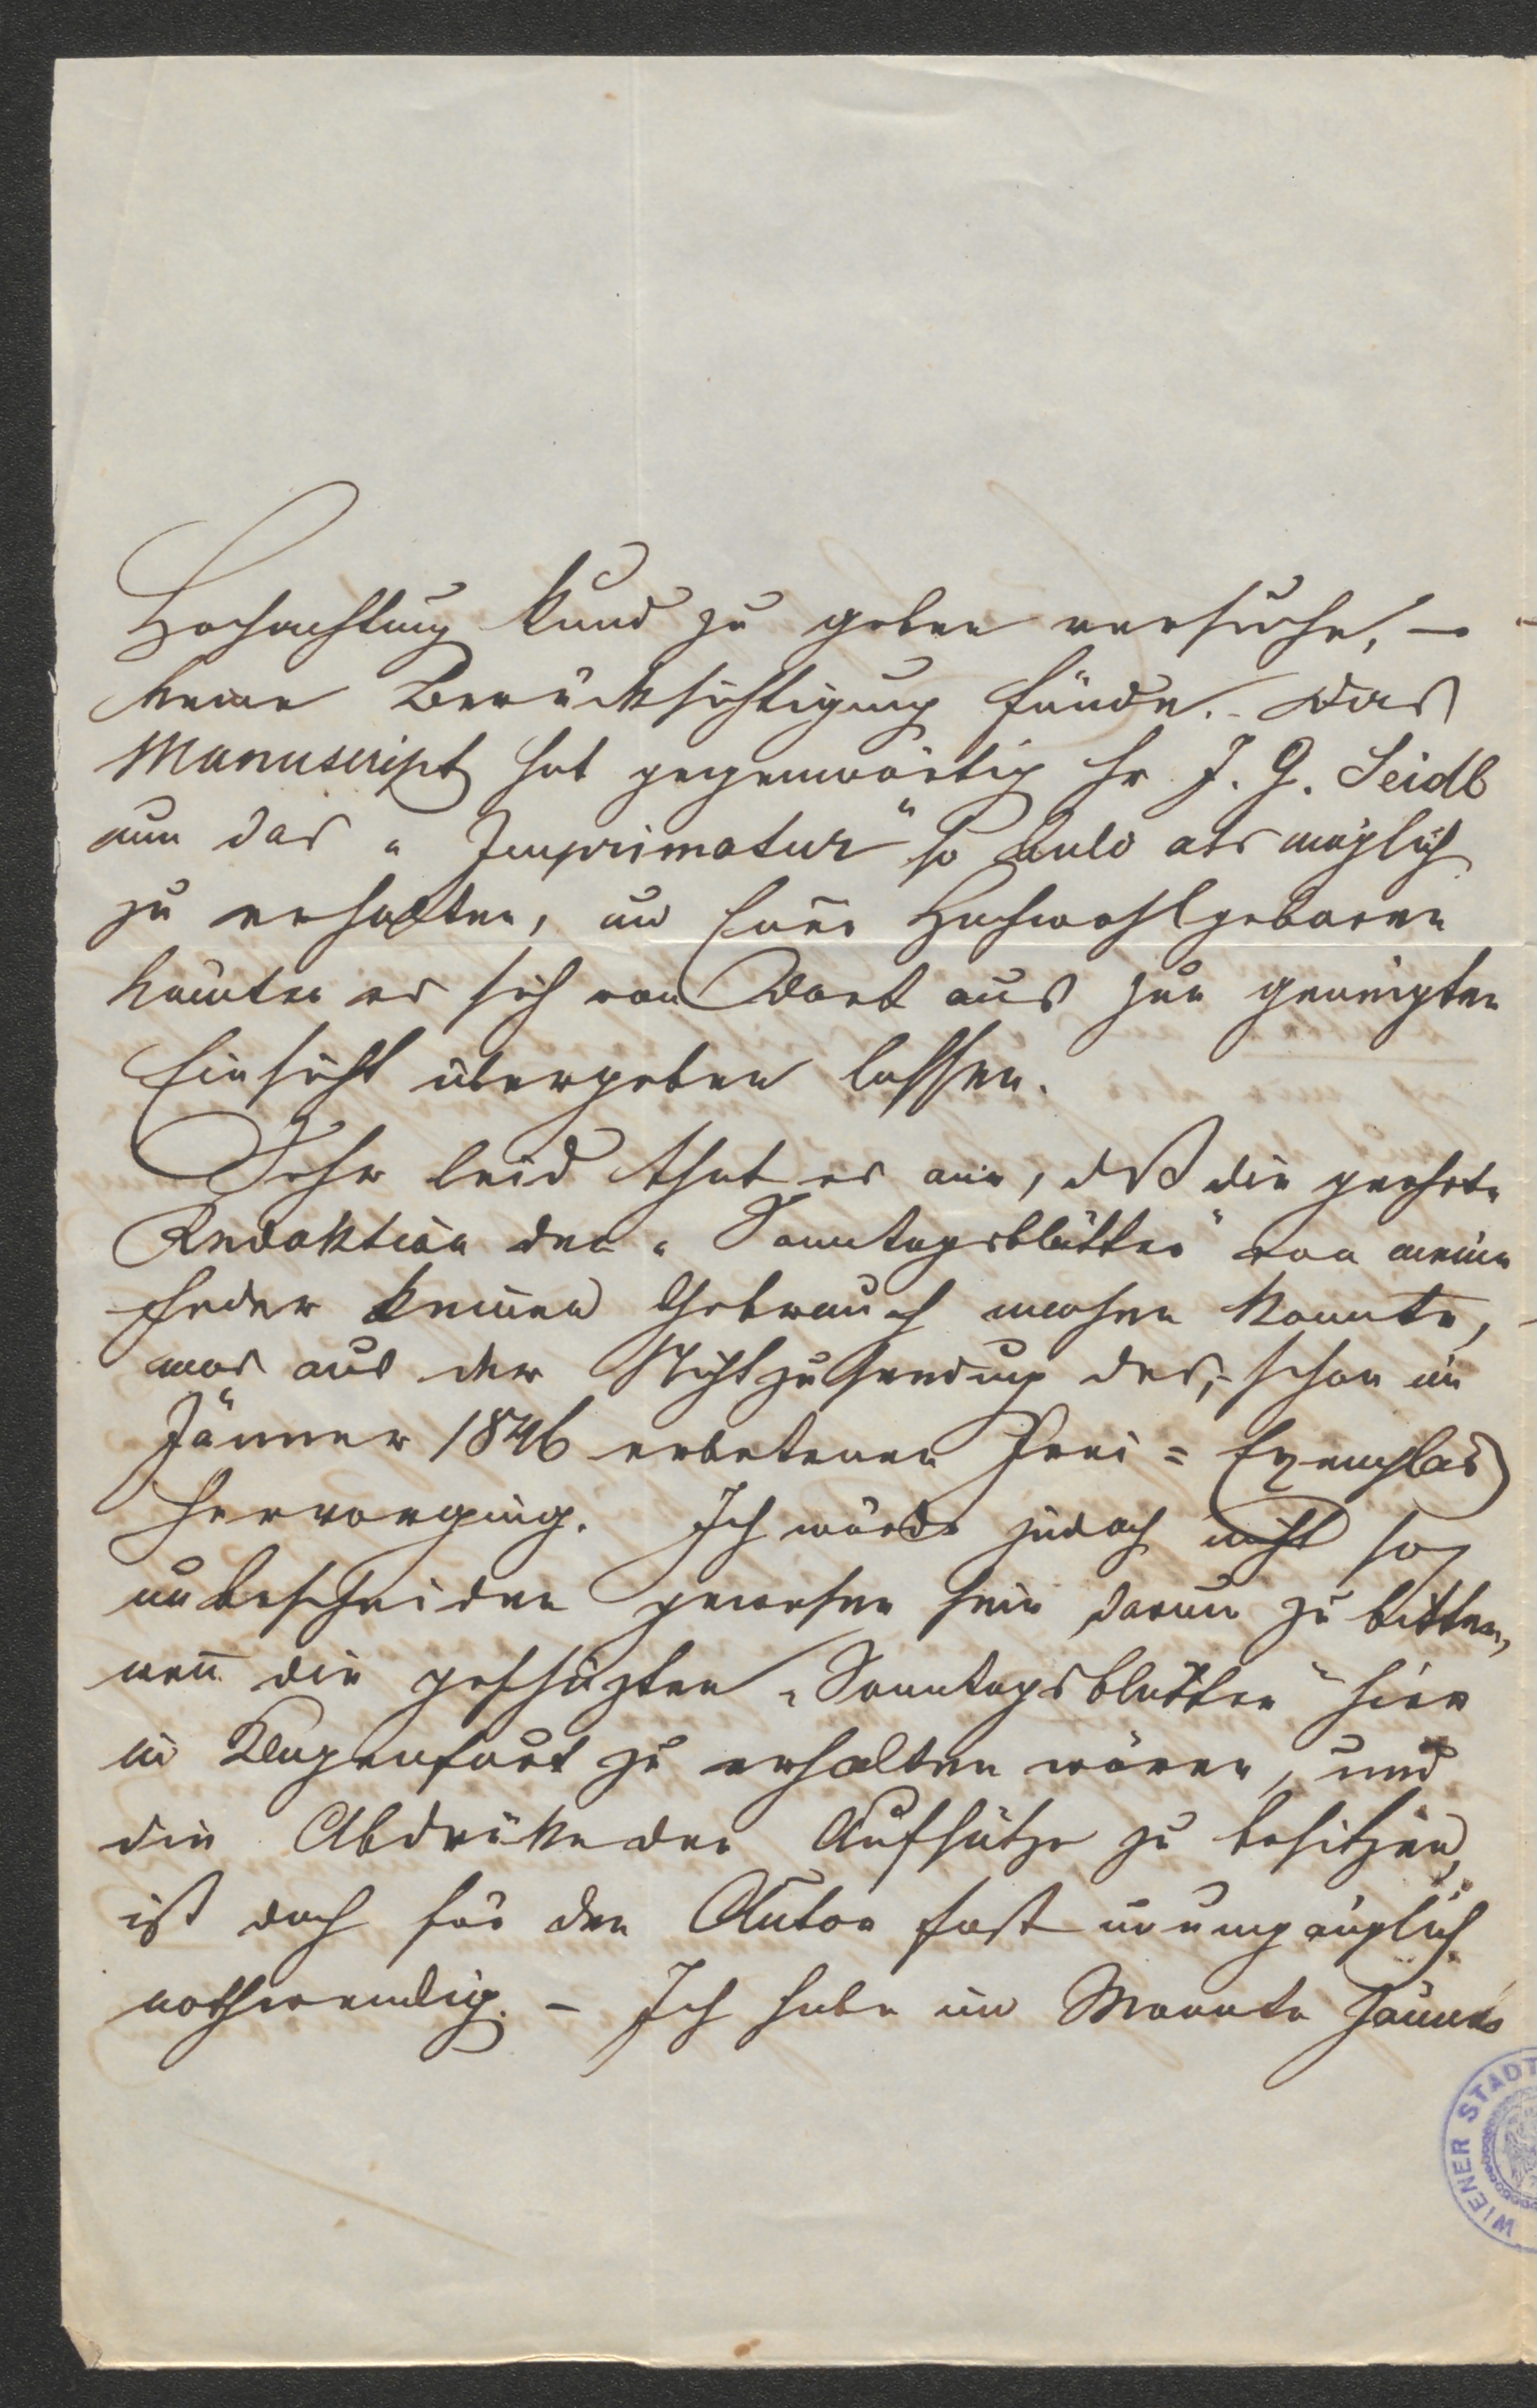 Hochachtung kund zu geben versuche, –
keine Berücksichtigung fände. – Das
Manuscript hat gegenwärtig Hr J. G. Seidl
um das „Imprimatur" so bald als möglich
zu erhalten, und Euer Hochwohlgeboren
könnten es sich von Dort aus zur geneigten
Einsicht übergeben lassen.
Sehr leid that es mir, daß die geehrte
Redaktion der „Sonntagsblätter" von meiner
Feder keinen Gebrauch machen konnte,
was aus der Nichtzusendung des, – schon im
Jänner 1846 erbetenen Frei=Exemplars
hervorging. Ich würde jedoch nicht so
unbescheiden gewesen sein darum zu bitten,
wen̄ die geschäzten „Sonntagsblätter" hier
in Klagenfurt zu erhalten wären, und
die Abdrücke der Aufsätze zu besitzen,
ist doch für den Autor fast unumgänglich
nothwendig. – Ich habe im Monate Jänner
WIENER STADT